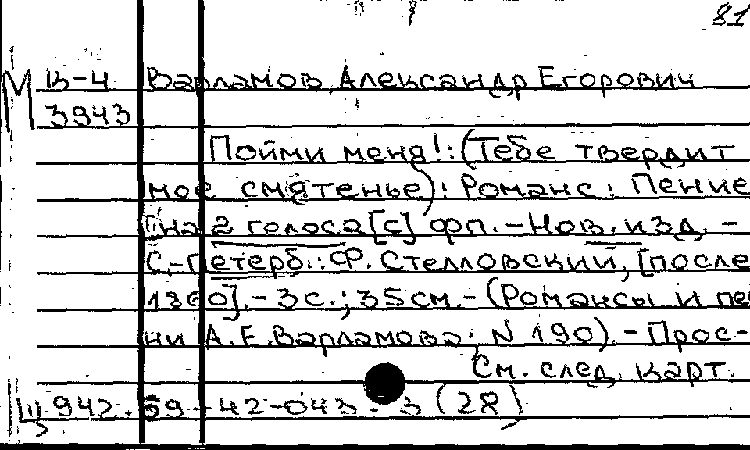 81
М В-4 Варламов, Александр Егорович
3943
Пойми меня!: (Тебе твердит
мое смятенье): Романс: Пение
[на 2 голоса [с] фп. - Нов. изд. -
С.-Петерб.: Ф. Стелловский, [после
1860]. - 3 с.; 35 см. - (Романсы и пес
ни А.Е. Варламова; N 190). - Прос-
См. след. карт.
Ц 942.59-42-043.3 (28)